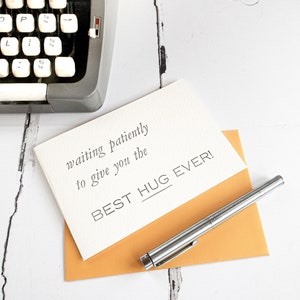 waiting patiently
to give you the
BEST HUG EVER!